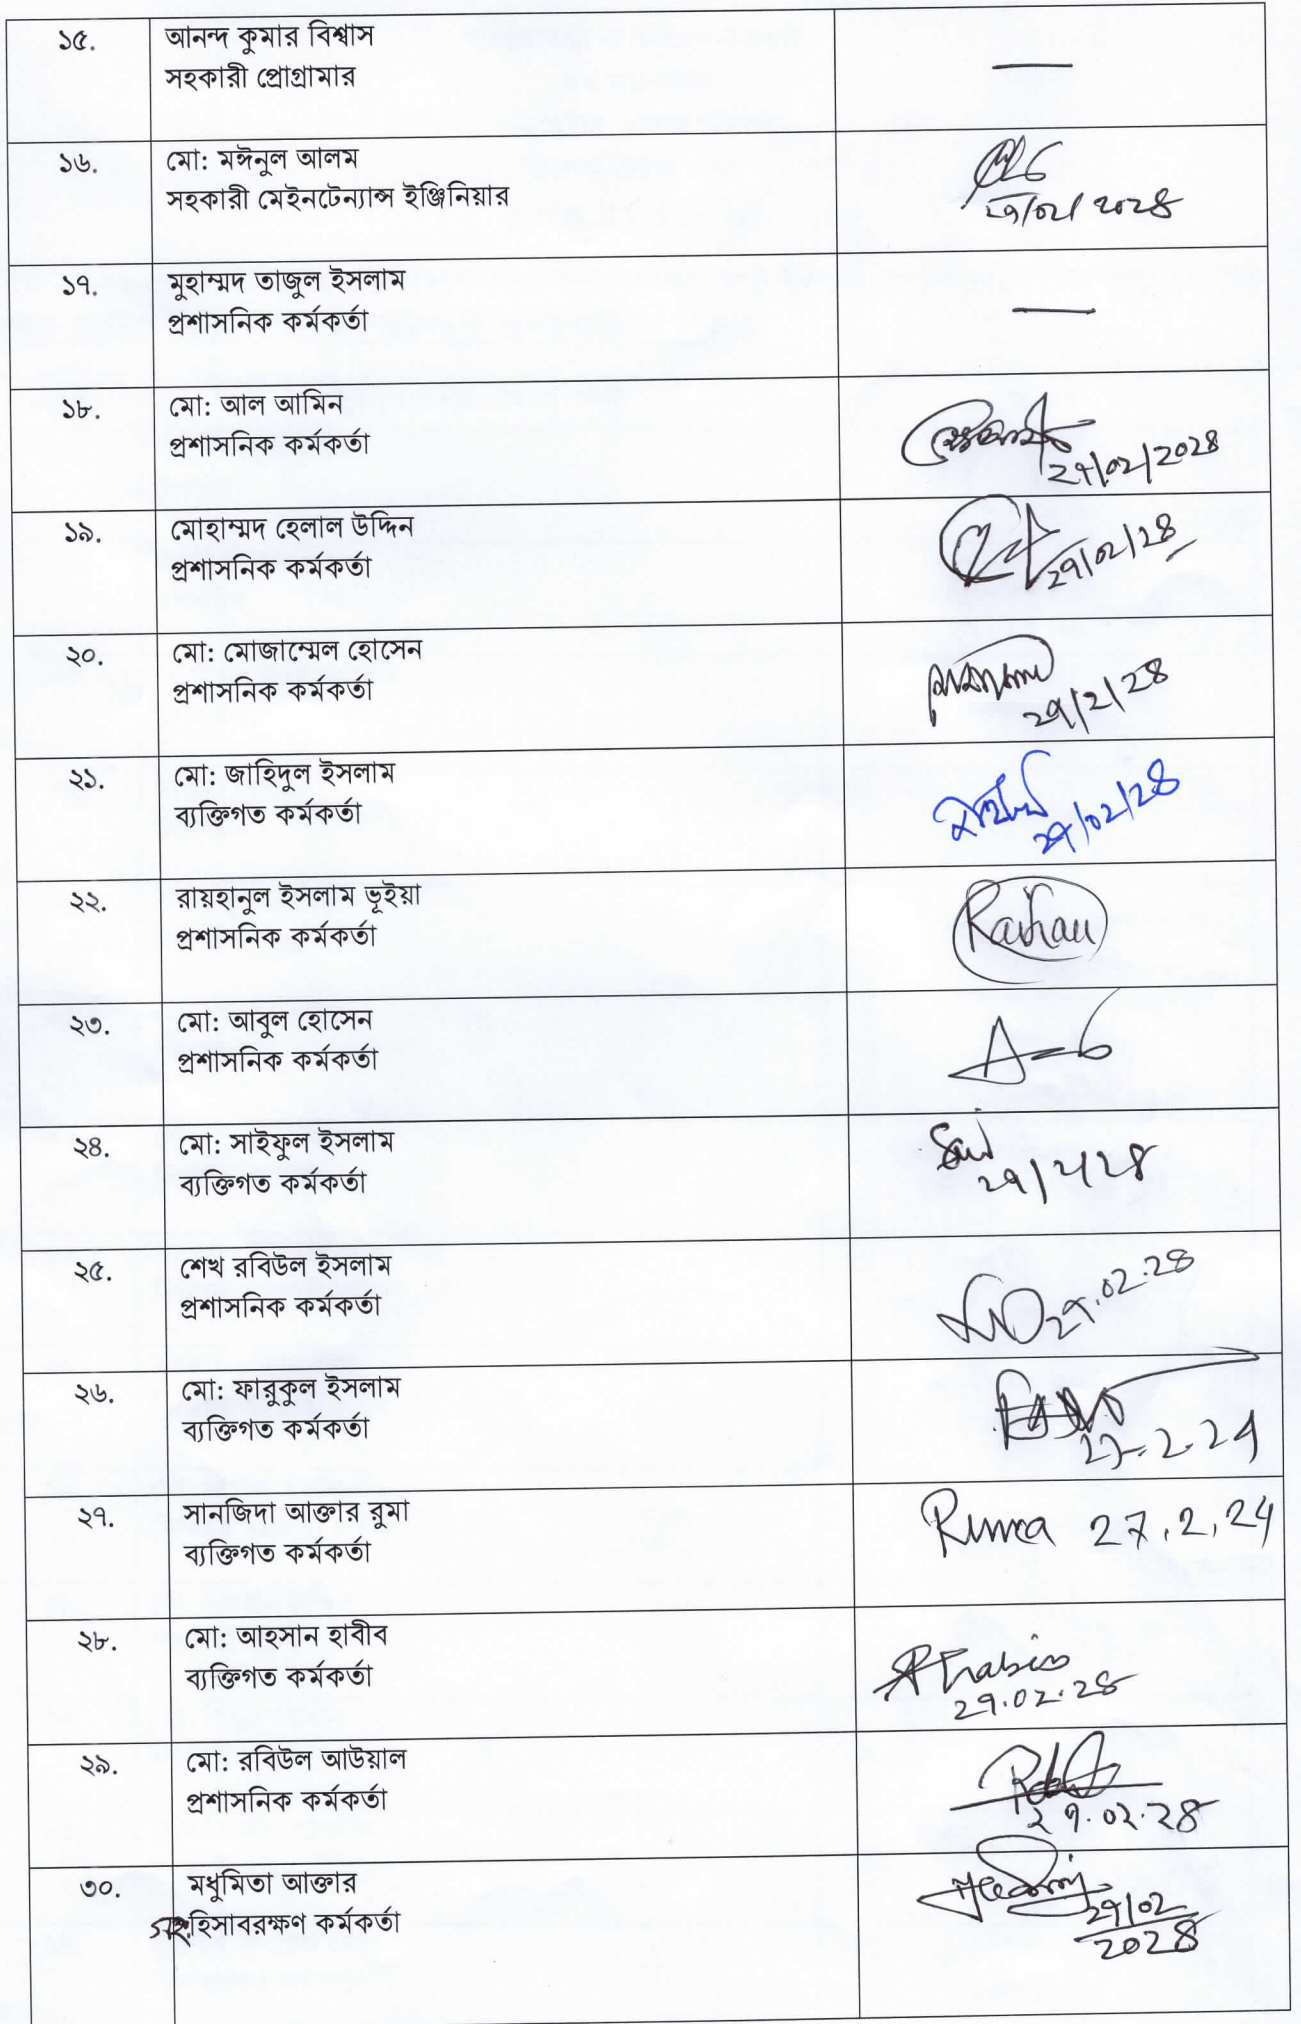 ১৫.
আনন্দ কুমার বিশ্বাস
সহকারী প্রোগ্রামার
—
১৬.
মো: মঈনুল আলম
সহকারী মেইনটেন্যান্স ইঞ্জিনিয়ার
২৭/০২/২০২৪
১৭.
মুহাম্মদ তাজুল ইসলাম
প্রশাসনিক কর্মকর্তা
—
১৮.
মো: আল আমিন
প্রশাসনিক কর্মকর্তা
২৭/০২/২০২৪
১৯.
মোহাম্মদ হেলাল উদ্দিন
প্রশাসনিক কর্মকর্তা
২৭/০২/২৪
২০.
মো: মোজাম্মেল হোসেন
প্রশাসনিক কর্মকর্তা
২৭/২/২৪
২১.
মো: জাহিদুল ইসলাম
ব্যক্তিগত কর্মকর্তা
২৭/০২/২৪
২২.
রায়হানুল ইসলাম ভূইয়া
প্রশাসনিক কর্মকর্তা
Raihan
২৩.
মো: আবুল হোসেন
প্রশাসনিক কর্মকর্তা
২৪.
মো: সাইফুল ইসলাম
ব্যক্তিগত কর্মকর্তা
২৭/২/২৪
২৫.
শেখ রবিউল ইসলাম
প্রশাসনিক কর্মকর্তা
২৭.০২.২৪
২৬.
মো: ফারুকুল ইসলাম
ব্যক্তিগত কর্মকর্তা
27.2.24
২৭.
সানজিদা আক্তার রুমা
ব্যক্তিগত কর্মকর্তা
Ruma 27.2.24
২৮.
মো: আহসান হাবীব
ব্যক্তিগত কর্মকর্তা
AHabib
২৭.০২.২৪
২৯.
মো: রবিউল আউয়াল
প্রশাসনিক কর্মকর্তা
২৭.০২.২৪
৩০.
মধুমিতা আক্তার
সহ.হিসাবরক্ষণ কর্মকর্তা
২৭/০২
২০২৪